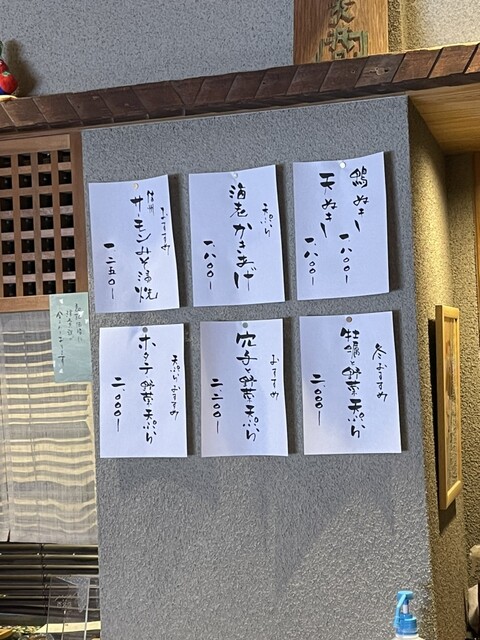 鴨ぬき
一、八〇〇ー
天ぬき
一、八〇〇ー
天ぷら
海老かきあげ
一、八〇〇ー
おすすめ
信州
サーモンみそ漬焼
一、二五〇ー
冬おすすめ
牡蠣と野菜天ぷら
二、〇〇〇ー
おすすめ
穴子と野菜天ぷら
二、二〇〇ー
天ぷらおすすめ
ホタテ野菜天ぷら
二、〇〇〇ー